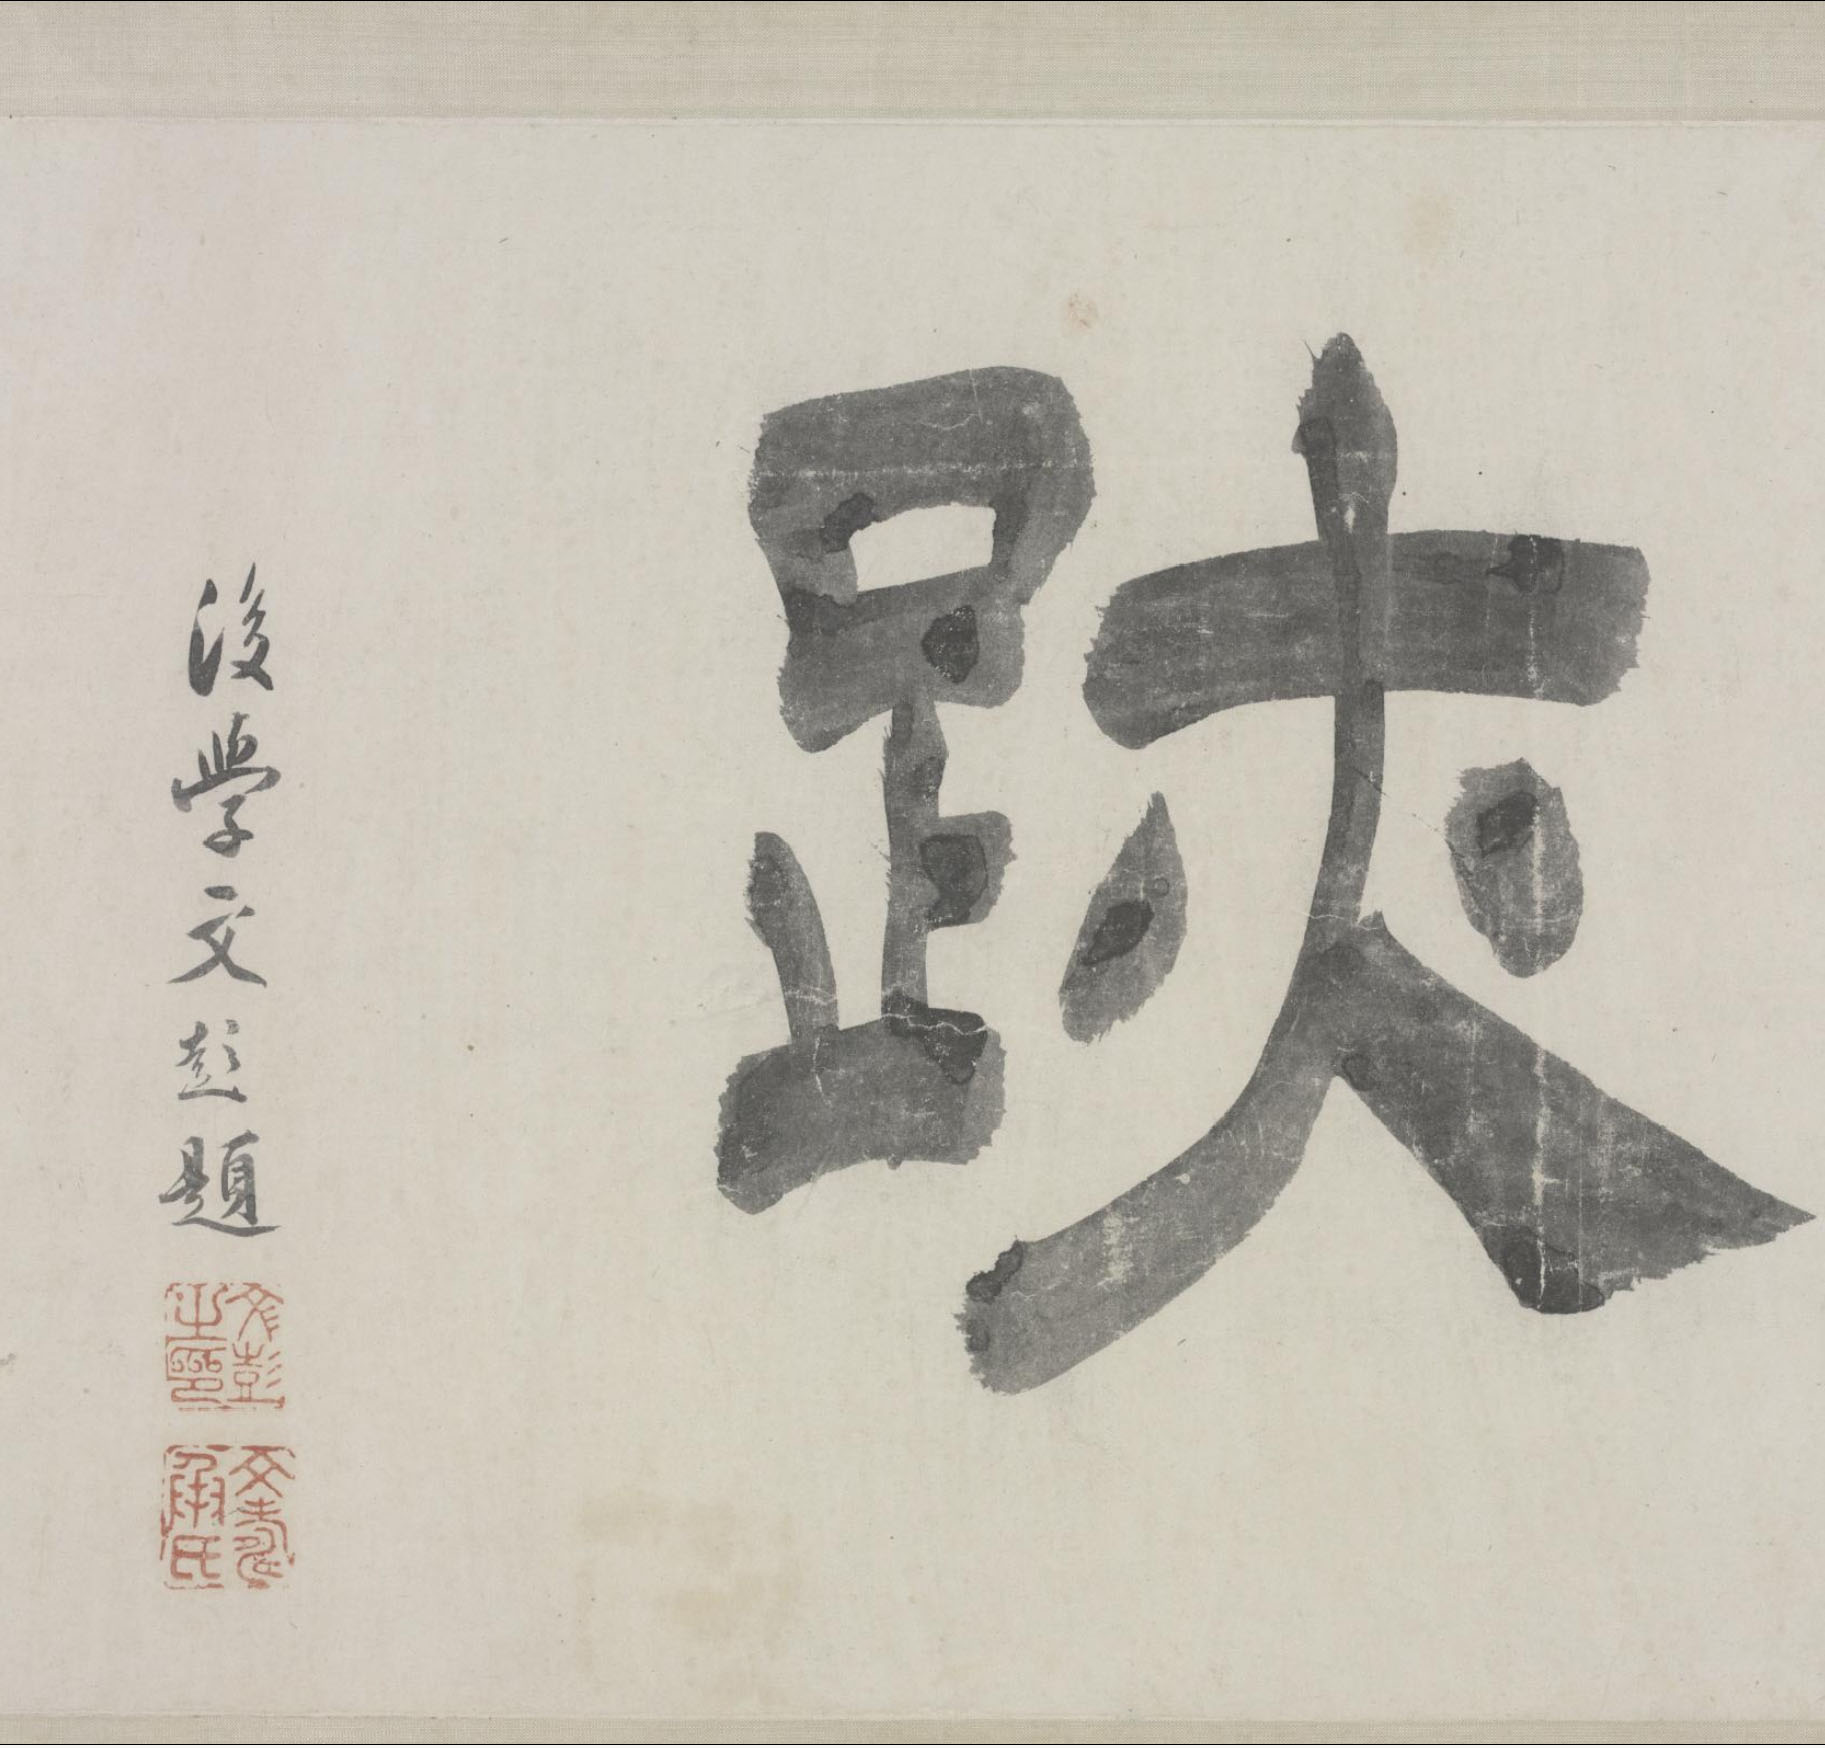 跡
後學文彭題
文彭之印
文壽承氏